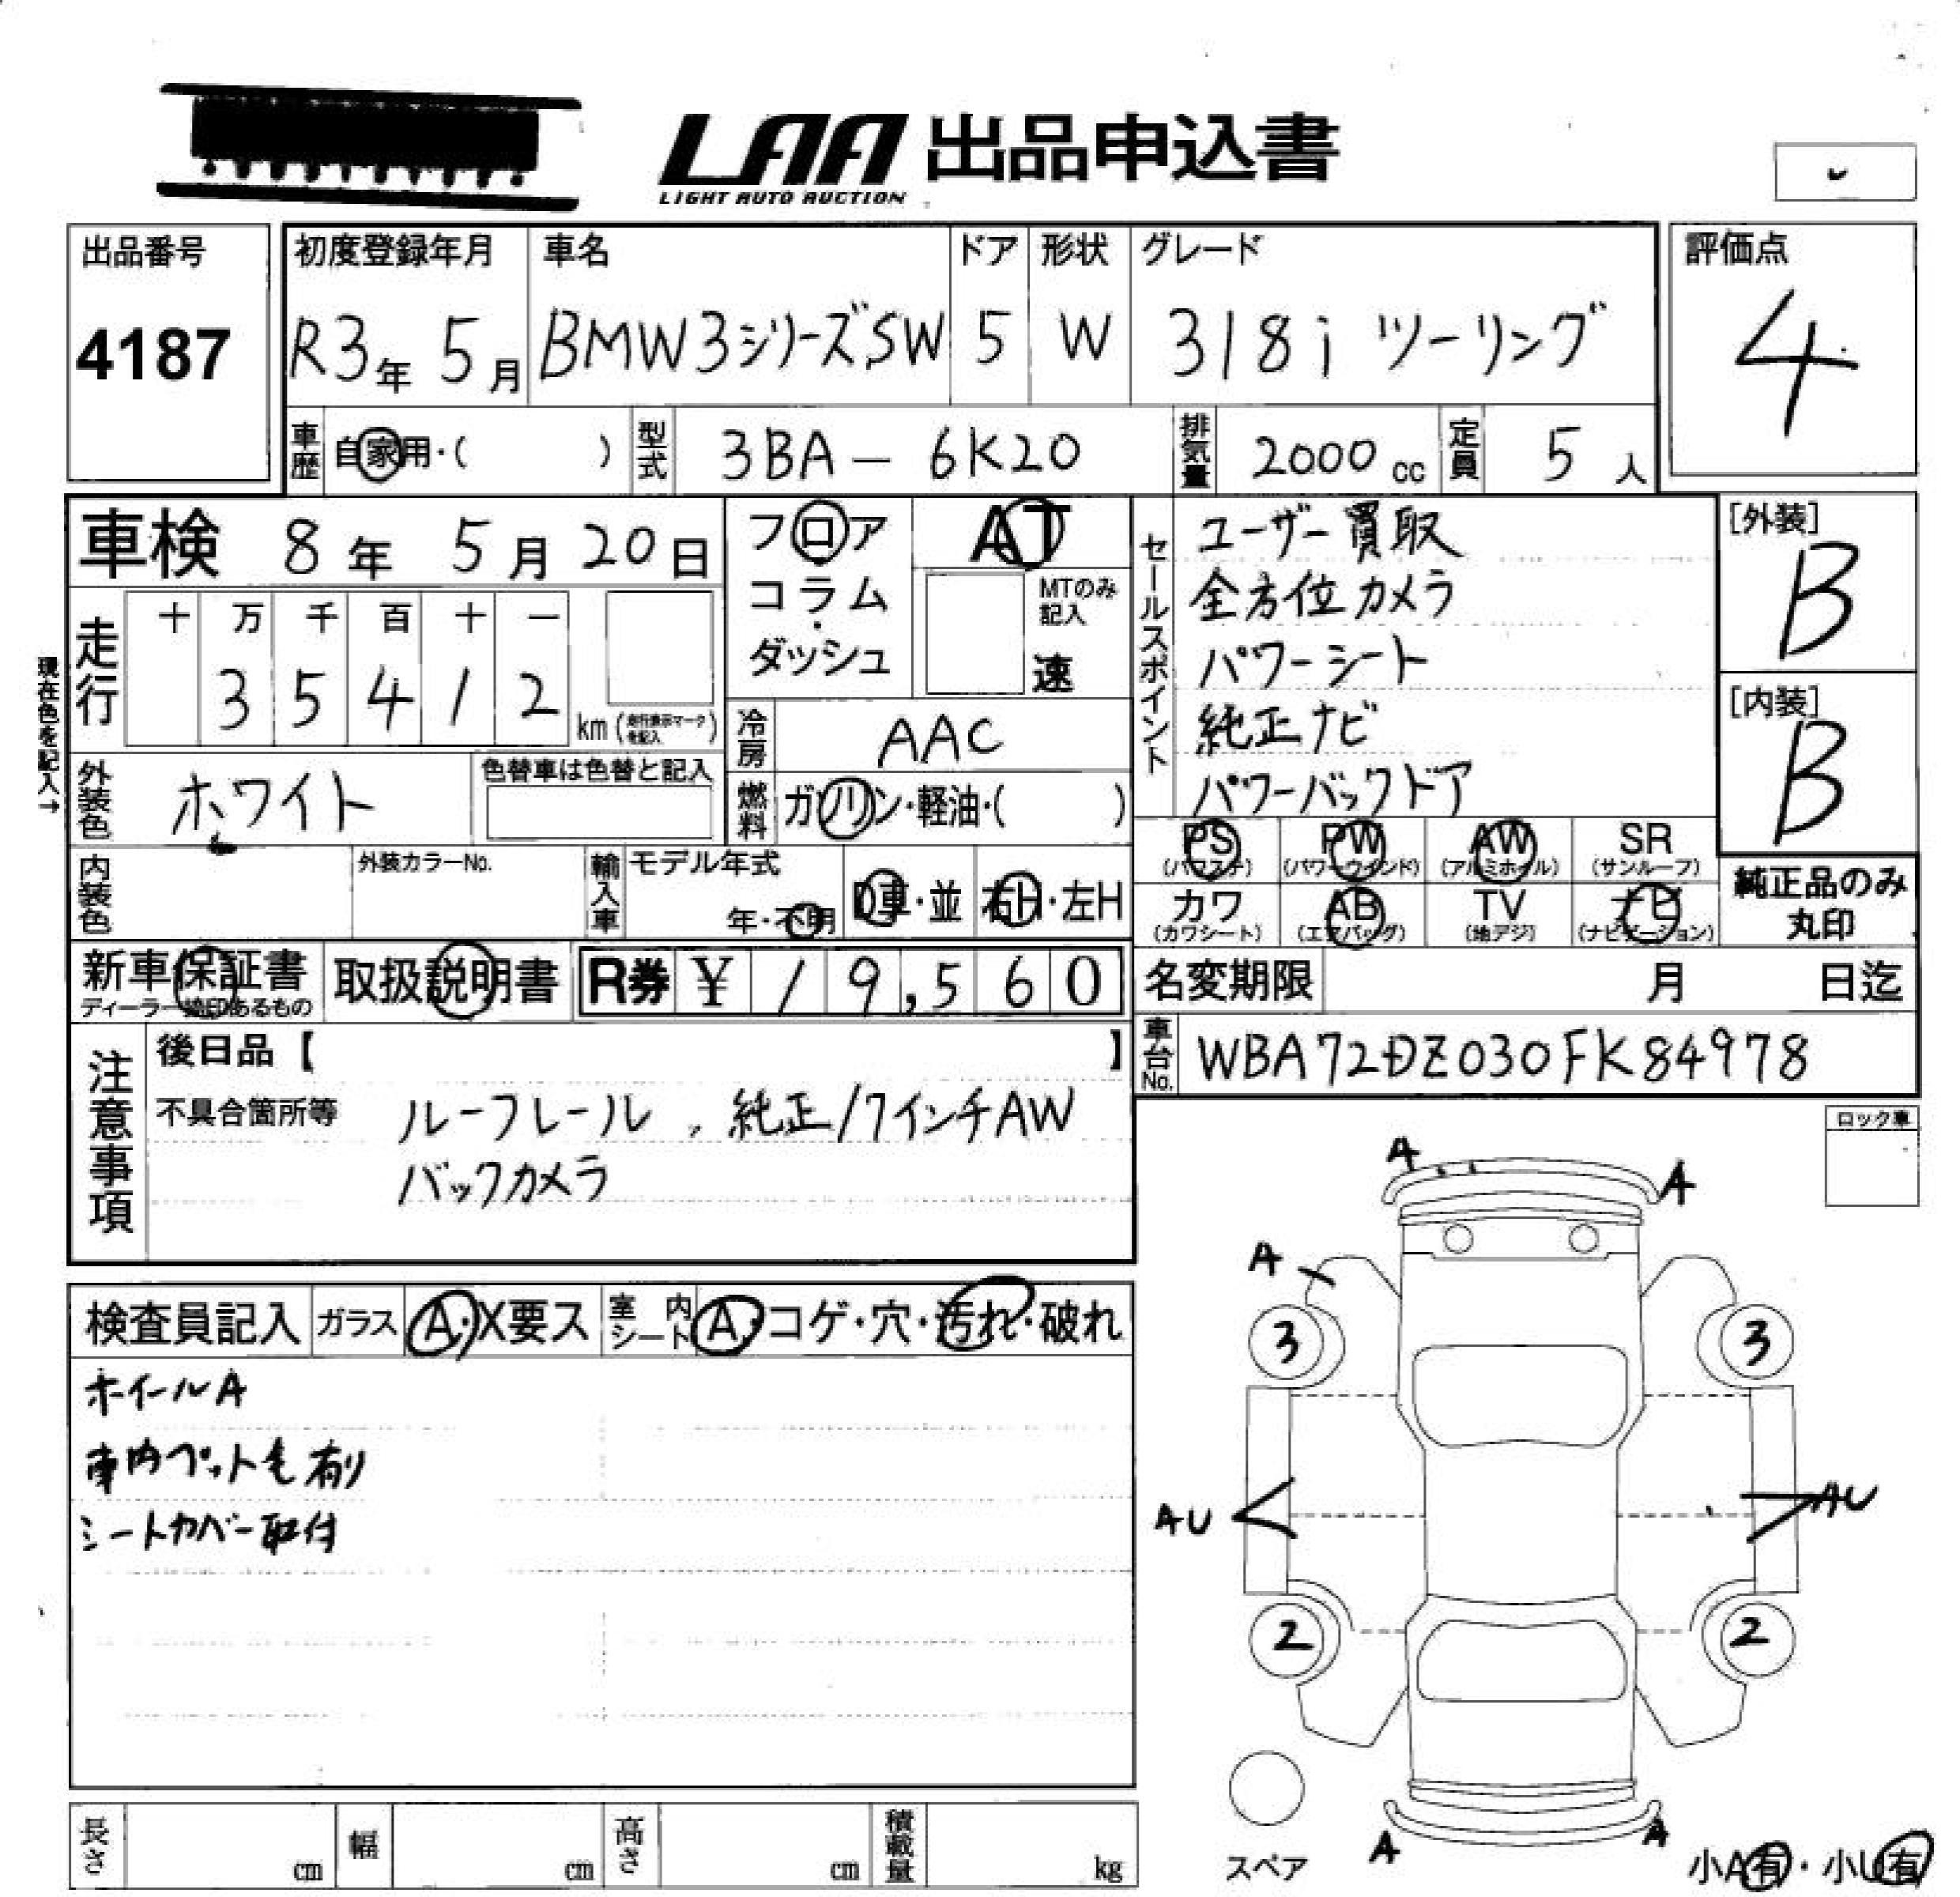 LAA 出品申込書
LIGHT AUTO AUCTION
出品番号
4187
初度登録年月
R3年 5月
車名
BMW3シリーズSW
ドア
5
形状
W
グレード
318i ツーリング
評価点
4
車歴
自家用・( )
型式
3BA-6K20
排気量
2000 cc
定員
5 人
車検 8年 5月 20日
フロア
コラム
・
ダッシュ
AT
MTのみ
記入
速
セールスポイント
ユーザー買取
全方位カメラ
パワーシート
純正ナビ
パワーバックドア
[外装]
B
[内装]
B
現在色を記入→
走行
十 万 千 百 十 一
3 5 4 1 2
km (走行表示マークを記入)
冷房
AAC
外装色
ホワイト
色替車は色替と記入
燃料
ガソリン・軽油・( )
PS
(パワステ)
PW
(パワーウインド)
AW
(アルミホイル)
SR
(サンルーフ)
内装色
外装カラーNo.
輸入車
モデル年式
年・不明
D車・並
右H・左H
カワ
(カワシート)
AB
(エアバッグ)
TV
(地デジ)
ナビ
(ナビゲーション)
純正品のみ
丸印
新車保証書
ディーラー捺印あるもの
取扱説明書
R券 ¥ 19,560
名変期限 月 日迄
車台No.
WBA72DZ030FK84978
注意事項
後日品【 】
不具合箇所等
ルーフレール、純正17インチAW
バックカメラ
ロック車
検査員記入
ガラス
A・X要ス
室内
シート
A・コゲ・穴・汚れ・破れ
ホイールA
車内ペット毛有り
シートカバー取付
A
A
A
3
3
AU
AU
2
2
A
A
スペア
小A有・小U有
長さ cm
幅 cm
高さ cm
積載量 kg